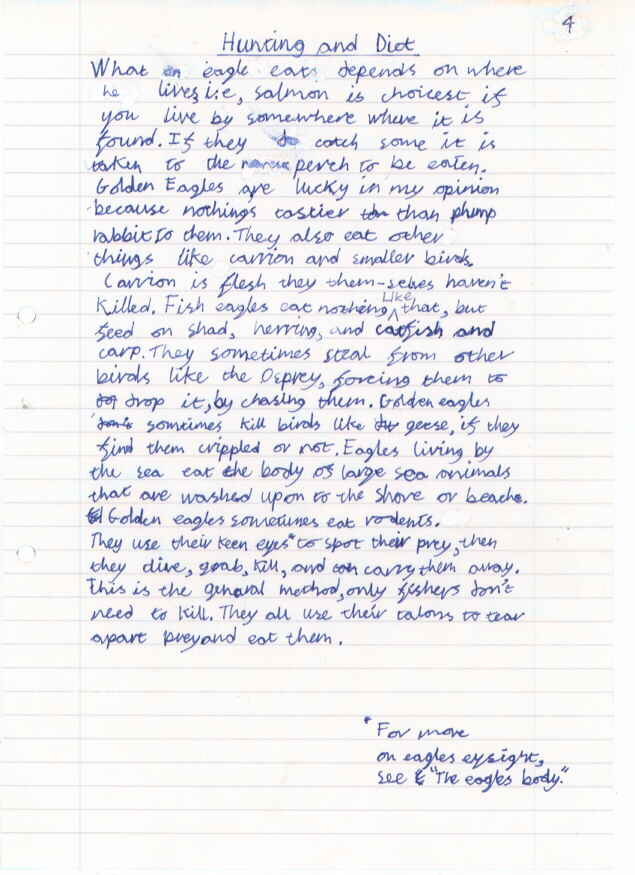 4
Hunting and Diet
What an eagle eats depends on where
he lives i.e, salmon is choicest if
you live by somewhere where it is
found. If they do catch some it is
taken to the perch to be eaten.
Golden Eagles are lucky in my opinion
because nothings tastier than plump
rabbit to them. They also eat other
things like carrion and smaller birds.
Carrion is flesh they them-selves haven't
killed. Fish eagles eat nothing like that, but
feed on shad, herring, and catfish and
carp. They sometimes steal from other
birds like the Osprey, forcing them to
drop it, by chasing them. Golden eagles
somtimes kill birds like geese, if they
find them crippled or not. Eagles living by
the sea eat the body of large sea animals
that are washed upon to the shore or beach.
Golden eagles sometimes eat rodents.
They use their keen eyes* to spot their prey, then
they dive, grab, kill, and carry them away.
This is the general method, only fishers don't
need to kill. They all use their talons to tear
apart prey and eat them.
* For more
on eagles eysight,
see "The eagles body."